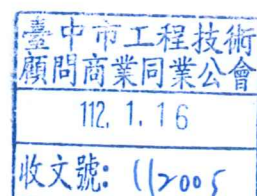 臺中市工程技術
顧問商業同業公會
112. 1. 16
收文號: 112005